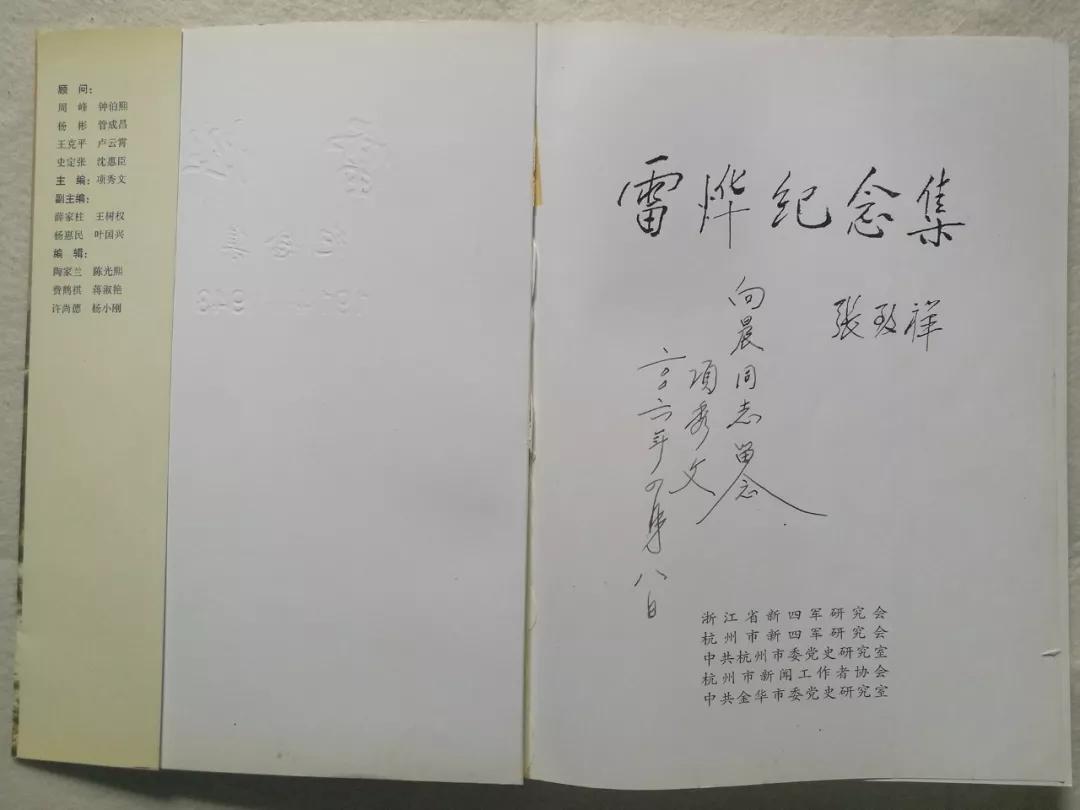 顾 问：
周 峰 钟伯熙
杨 彬 管成昌
王克平 卢云霄
史定张 沈惠臣
主 编：项秀文
副主编：
薛家柱 王树权
杨惠民 叶国兴
编 辑：
陶家兰 陈光熙
费鹤祺 蒋淑艳
许尚德 杨小刚
雷烨纪念集
张致祥
向晨同志留念
项秀文
二〇〇六年
八日
浙江省新四军研究会
杭州市新四军研究会
中共杭州市委党史研究室
杭州市新闻工作者协会
中共金华市委党史研究室